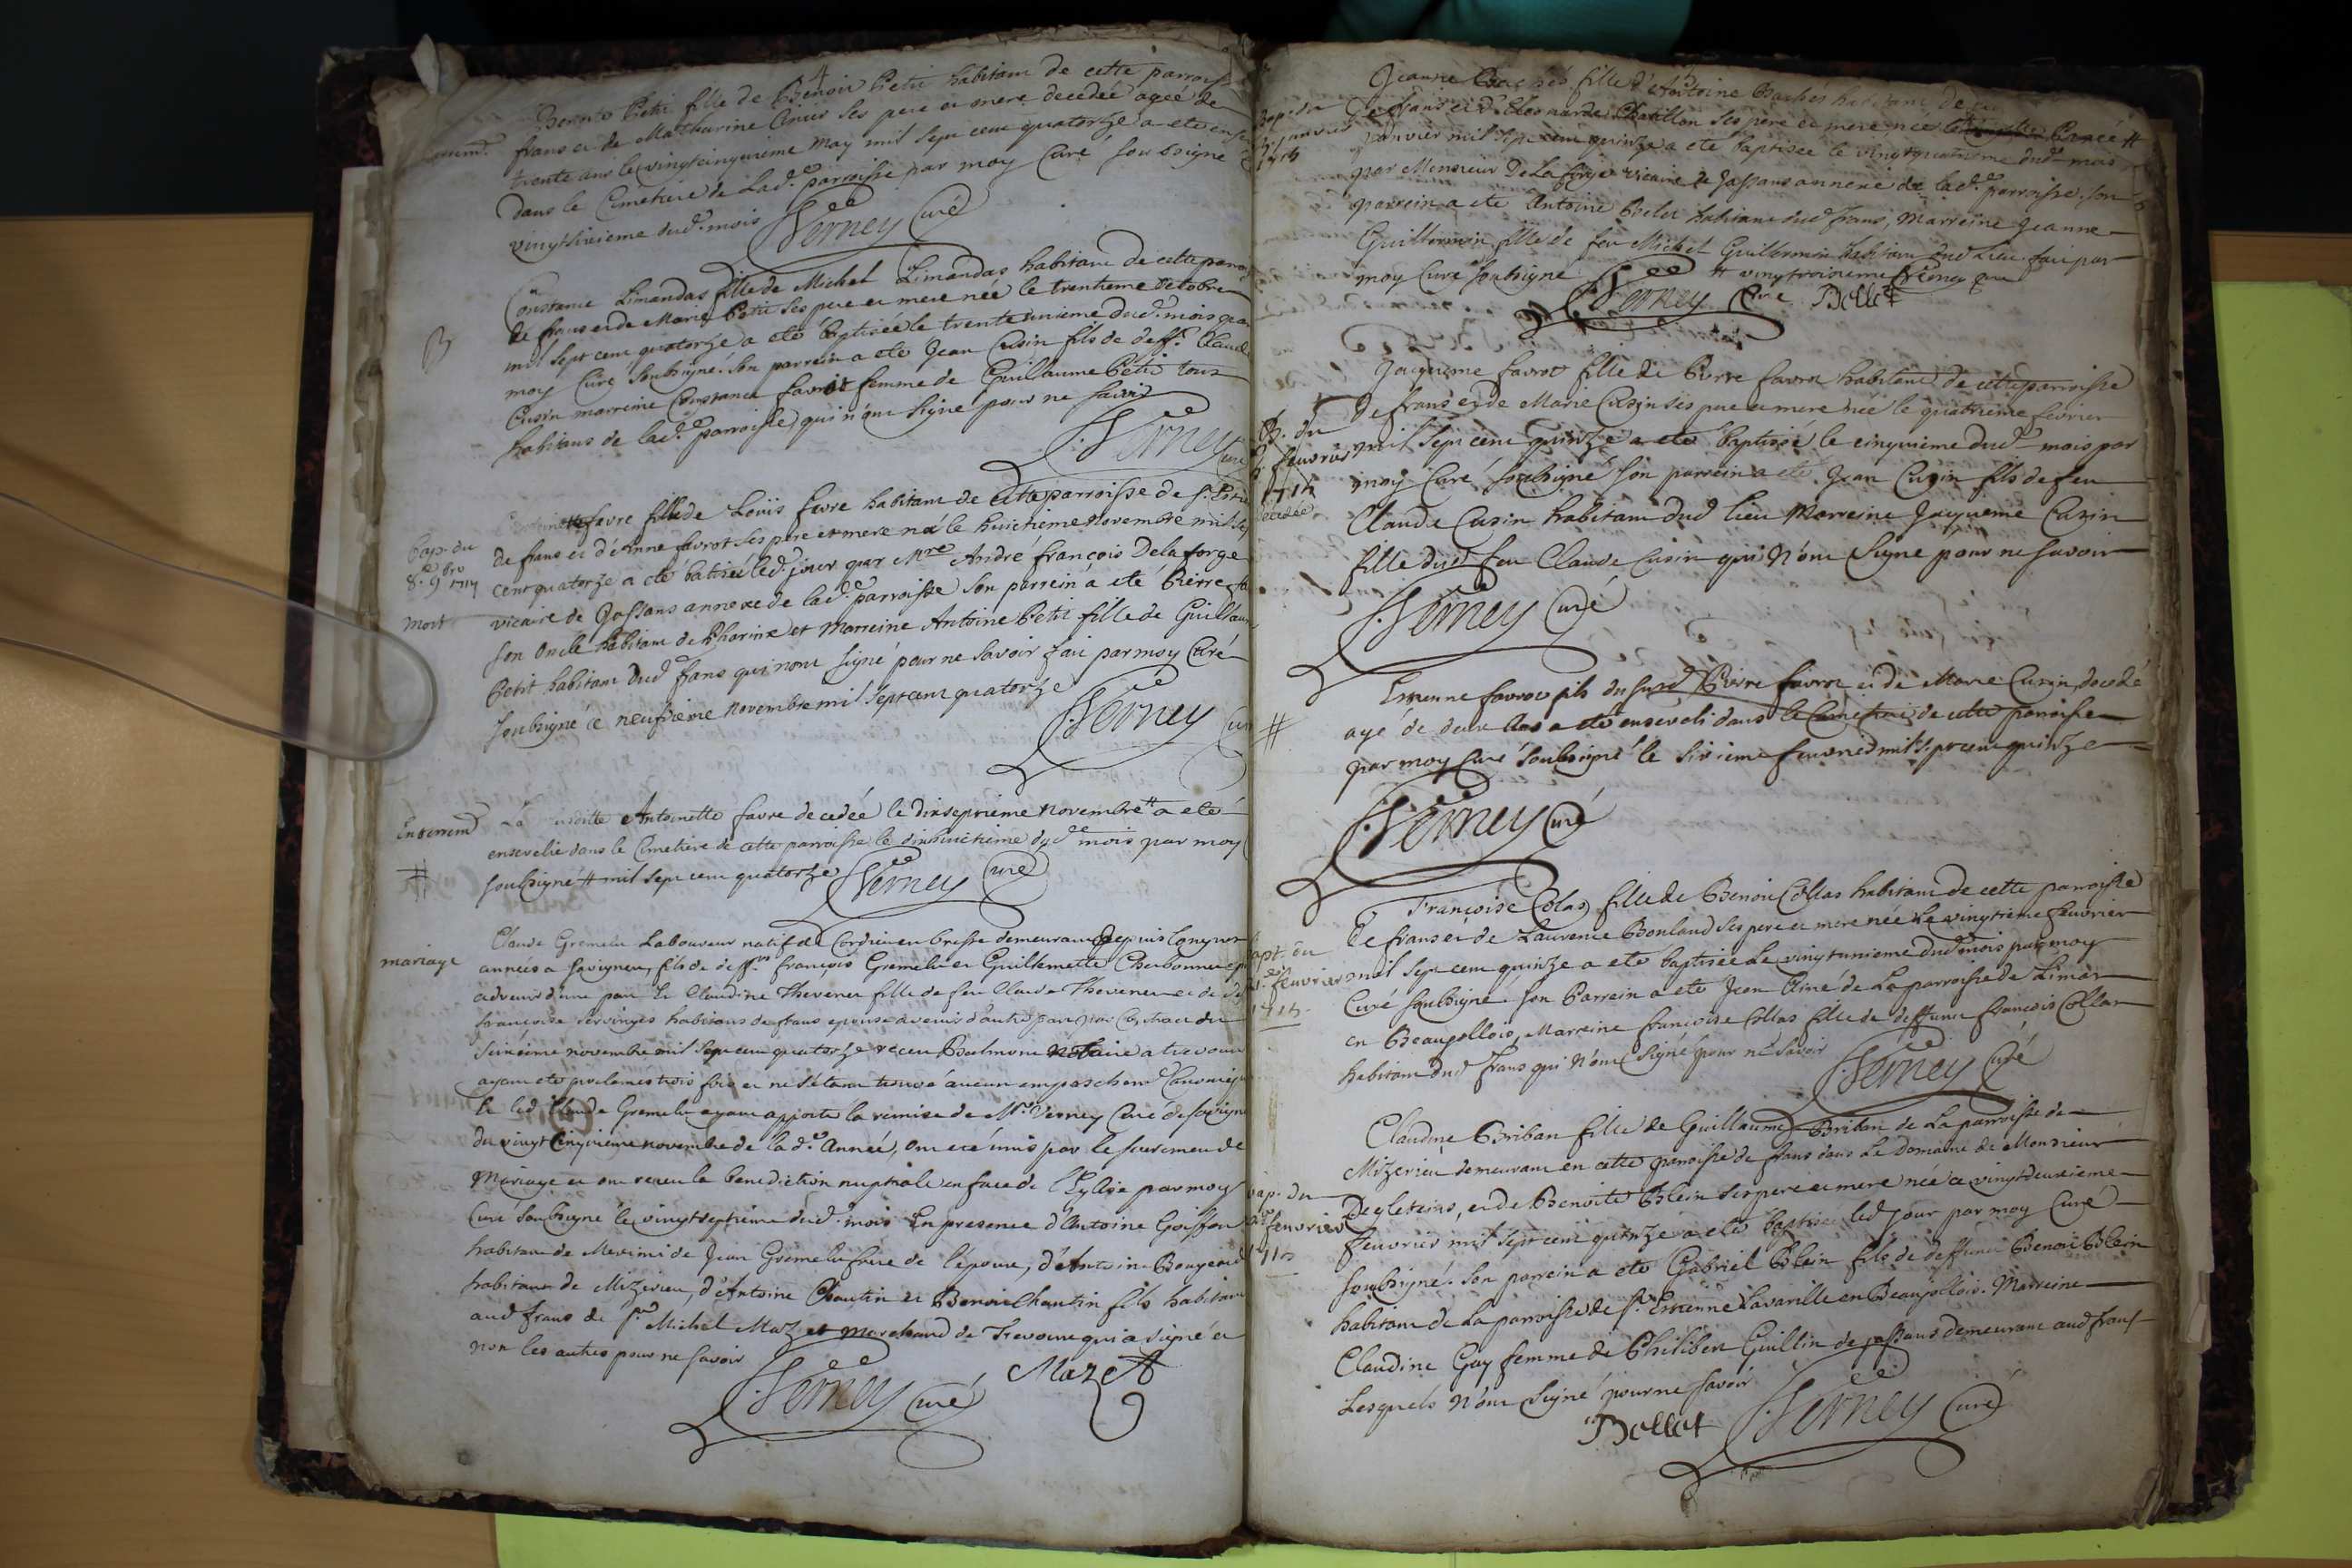 4
Benoite Petit fille de Benoist Petit habitant de cette parroisse
frans et de Mathurine ses pere et mere decedeé ageé de
trente ans le vingtcinquieme may mil sept cent quatorze a eté
dans le Cimetiere de lad.e parroisse par moy Curé soubsigné
vingtsixieme dud. mois J. Verney Curé
B
Constance Limandas fille de Michel Limandas habitant de cette
de frans et de Marie Petit ses pere et mere née le trentieme Octobre
mil sept cent quatorze a eté baptiseé le trente unieme dud. mois par
moy Curé soubsigné. Son parrein a eté Jean Cusin fils de deff.t Claude
Cusin marreine Constance favrot femme de Guillaume Petit tous
habitans de lad.e parroisse qui n'ont signé pour ne savoir
J. Verney Curé
Bap. du
8.e 9bre 1714
mort
favre fille de Loüis favre habitant de cette parroisse de
de frans et d'Anne favrot ses pere et mere neé le huictieme Novembre mil sept
cent quatorze a eté batiseé led. jour par Mre André françois Delaforge
vicaire de Jassans annexe de lad.e parroisse Son parrein a eté Pierre
son Oncle habitant de et Marreine Antoine Petit fille de Guillaume
Petit habitant dud frans qui nont signé pour ne savoir fait par moy Curé
soubsigné ce neufvieme Novembre mil sept cent quatorze
J. Verney Curé
Enterremt
#
La Antoinette favre decedeé le dixseptieme Novembre # a eté
ensevelie dans le Cimetiere de cette parroisse le dixhuictieme dud mois par moy
soubsigné # mil sept cent quatorze J. Verney Curé
mariage
Claude Gremelu Laboureur natif de Cordieu en bresse demeurant depuis longues
années a Savigneu, fils de deff.ts françois Gremelu et Guillemette Charbonnet
advenir d'une part Et Claudine Thevenet fille de feu Claude Thevenet et de
francoise habitans de frans epouse avenir d'autre part par Contract du
Seizieme novembre mil sept cent quatorze receu Notaire a trevoux
ayant eté proclamés trois fois et ne s'étant trouvé aucun empaschemt Canonique
le led Claude Gremelu ayant apporté la remise de Mr. Verney Curé de Savigneu
du vingt Cinquieme novembre de lad.e Année, ont eté unis par le sacrement de
Mariage et ont receu la benediction nuptiale en face de l'Eglise par moy
Curé Soubsigné le vingtseptieme dud. mois En presence d'Antoine Goiffon
habitant de Meximi de Jean Gremelu frere de l'epoux, d'Antoine
habitant de Mizerieu, d'Antoine Chantin et Benoit Chantin fils habitans
aud frans de Sr Michel Mazet Marchand de Trevoux qui a signé et
non les autres pour ne savoir
J. Verney Curé Mazet
5
Jeanne fille d'Antoine habitant de
de frans et de Chatillon ses pere et mere neé #
janvier mil sept cent quinze a eté baptisée le vingtquatrieme dud. mois
par Monsieur De La forge vicaire de Jassans annexe de lad.e parroisse. son
parrein a eté Antoine habitant dud frans, Marreine Jeanne
Guillermin fille de feu Michel Guillermin habitant dud Lieu. fait par
moy Curé soubsigné # vingt troisieme Verney Curé
J. Verney Curé Bollet
Jaqueme favrot fille de Pierre favrot habitant de cette parroisse
de frans et de Marie Cusin ses pere et mere née le quatrieme fevrier
mil sept cent quinze a eté baptisée le cinquieme dud mois par
moy Curé soubsigné Son parrein a eté Jean Cusin fils de feu
Claude Cusin habitant dud Lieu Marreine Jaqueme Cusin
fille dud feu Claude Cusin qui N'ont Signé pour ne savoir
J. Verney Curé
#
Etienne favrot fils du susd Pierre favrot et de Marie Cusin, decedé
agé de deux Ans a eté enseveli dans le Cimetiere de cette parroisse
par moy Curé Soubsigné le sixieme feuvrier mil sept cent quinze
J. Verney Curé
Françoise Colas fille de Benoit Collas habitant de cette parroisse
de frans et de Laurence Bonland ses pere et mere née Le vingtieme feuvrier
mil sept cent quinze a eté baptisée Le vingtunieme dud mois par moy
Curé soubsigné. Son Parrein a eté Jean de La parroisse de Limas
en Beaujollois, Marreine françoise Collas fille de deffunct françois Collas
habitant dud frans qui N'ont Signé pour ne savoir J. Verney Curé
bap. du
feuvrier
1715
Claudine Briban fille de Guillaume Briban de La parroisse de
Mizerieu demeurant en cette parroisse de frans dans Le Domaine de Monsieur
Degleteins, et de Benoite Blein ses pere et mere née ce vingtdeuxieme
feuvrier mil sept cent quinze a eté baptisée led jour par moy Curé
soubsigné. Son parrein a eté Gabriel Blein fils de deffunct Benoit Blein
habitant de La parroisse de St Etienne Lavarille en Beaujollois. Marreine
Claudine Gay femme de Philibert Guillin de jassans demeurant aud frans
Lesquels N'ont Signé pour ne savoir
Bollet J. Verney Curé